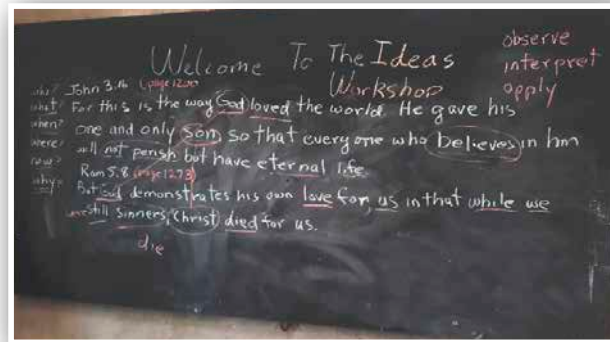 Welcome To The Ideas
Workshop
observe
interpret
apply
who? John 3.16
what? For this is the way God loved the world. He gave his
when? one and only son, so that everyone who believes in him
where? will not perish but have eternal life.
how? Rom 5.8 (page 1273)
why? But God demonstrates his own love for us in that while we
were still sinners, Christ died for us.
die